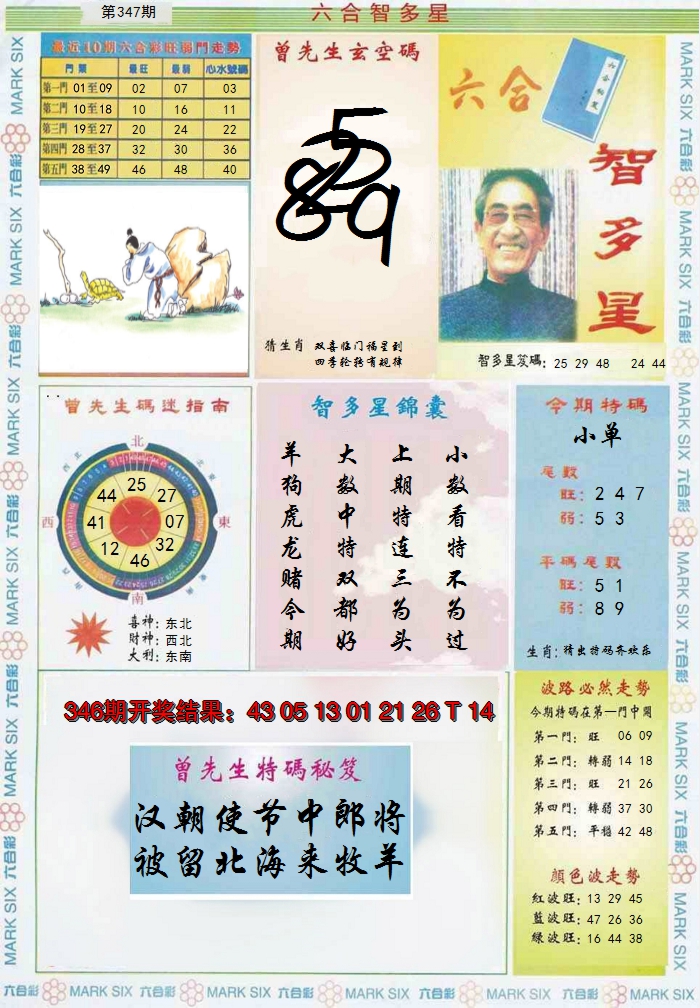 第347期
六合智多星
最近10期六合彩旺弱門走勢
門類 最旺 最弱 心水號碼
第一門 01至09 02 07 03
第二門 10至18 10 16 11
第三門 19至27 20 24 22
第四門 28至37 32 30 36
第五門 38至49 46 48 40
曾先生玄空碼
5
2
8 9
猜生肖 双喜临门福星到
四季轮转有规律
六合
智多星
智多星笈碼: 25 29 48 24 44
曾先生碼迷指南
北
西北
东北
西
東
南
25
44 27
41 07
12 32
46
喜神: 东北
财神: 西北
大利: 东南
智多星錦囊
小数看特不为过
上期特连三为头
大数中特双都好
羊狗虎龙赌今期
今期特碼
小单
尾數
旺: 2 4 7
弱: 5 3
平碼尾數
旺: 5 1
弱: 8 9
生肖: 猜出特码齐欢乐
346期开奖结果: 43 05 13 01 21 26 T 14
曾先生特碼秘笈
汉朝使节中郎将
被留北海来牧羊
波路必然走勢
今期特碼在第一門中開
第一門: 旺 06 09
第二門: 轉弱 14 18
第三門: 旺 21 26
第四門: 轉弱 37 30
第五門: 平穩 42 48
顏色波走勢
紅波旺: 13 29 45
藍波旺: 47 26 36
綠波旺: 16 44 38
六合彩 MARK SIX 六合彩 MARK SIX 六合彩 MARK SIX 六合彩 MARK SIX 六合彩 MARK SIX